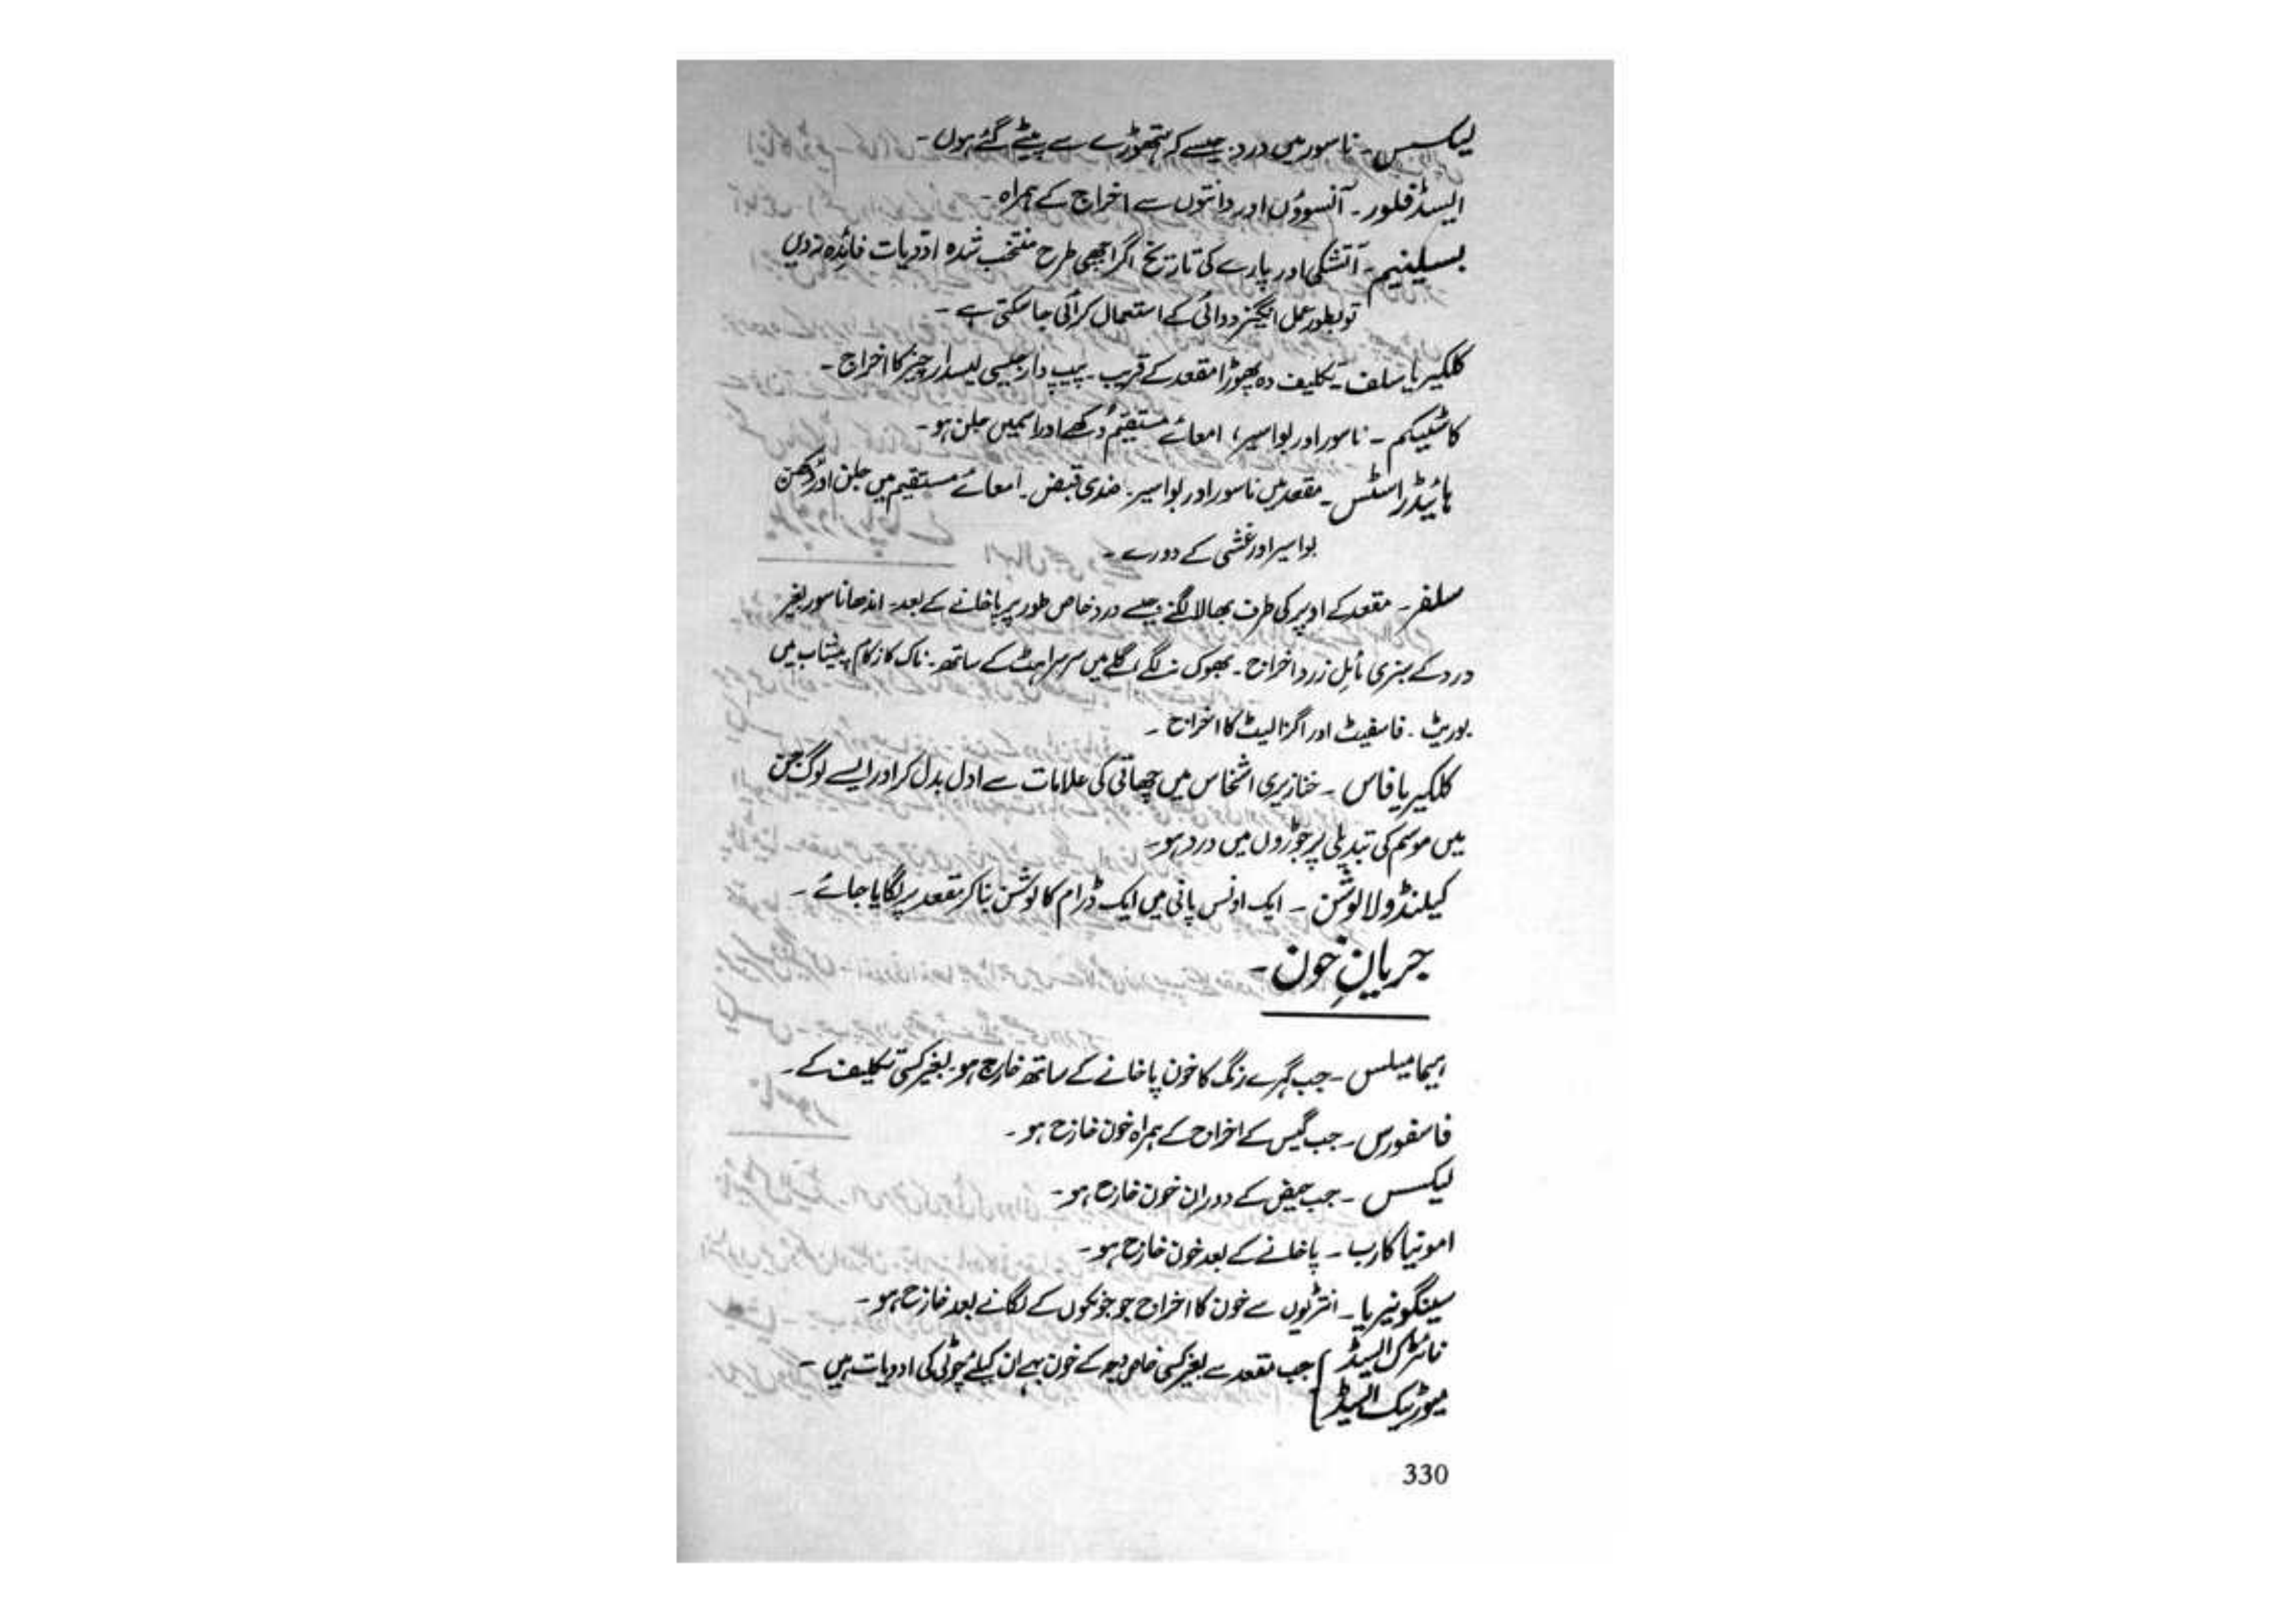 لیکسس۔ ناسور میں درد جیسے کہ ہتھوڑے سے پیٹے گئے ہوں۔
ایسڈ فلور۔ آنسوؤں اور دانتوں سے اخراج کے ہمراہ۔
بسیلینیم۔ آتشکی اور پارے کی تاریخ اگر اچھی طرح منتخب شدہ ادویات فائدہ نہ دیں
تو بطور عمل انگیز دوائی کے استعمال کرائی جا سکتی ہے۔
کلکیریا سلف۔ تکلیف دہ پھوڑا مقعد کے قریب۔ پیپ دار جیسی لیسدار چیز کا اخراج۔
کاسٹیکم۔ ناسور اور بواسیر، امعائے مستقیم دکھے اور اسمیں جلن ہو۔
ہائیڈراسٹس۔ مقعد میں ناسور اور بواسیر۔ ضدی قبض۔ امعائے مستقیم میں جلن اور دکھن
بواسیر اور غشی کے دورے۔
سلفر۔ مقعد کے اوپر کی طرف بھالا لگنے جیسے درد خاص طور پر پاخانے کے بعد۔ اندھا ناسور بغیر
درد کے سبزی مائل زرد اخراج۔ بھوک نہ لگے گلے میں سرسراہٹ کے ساتھ۔ ناک کا زکام پیشاب میں
یوریٹ۔ فاسفیٹ اور اگزالیٹ کا اخراج۔
کلکیریا فاس۔ خنازیری اشخاس میں چھاتی کی علامات سے ادل بدل کر اور ایسے لوگ جن
میں موسم کی تبدیلی پر جوڑوں میں درد ہو۔
کیلنڈولا لوشن۔ ایک اونس پانی میں ایک ڈرام کا لوشن بنا کر مقعد پر لگایا جائے۔
جریانِ خون۔
ہیمامیلس۔ جب گہرے رنگ کا خون پاخانے کے ساتھ خارج ہو۔ بغیر کسی تکلیف کے۔
فاسفورس۔ جب گیس کے اخراج کے ہمراہ خون خارج ہو۔
لیکسس۔ جب حیض کے دوران خون خارج ہو۔
امونیا کارب۔ پاخانے کے بعد خون خارج ہو۔
سینگونیریا۔ انتڑیوں سے خون کا اخراج جو جونکوں کے لگانے بعد خارج ہو۔
نائٹرک ایسڈ
میورٹیک ایسڈ } جب مقعد سے بغیر کسی خاص وجہ کے خون بہے ان کیلئے چوٹی کی ادویات ہیں۔
330